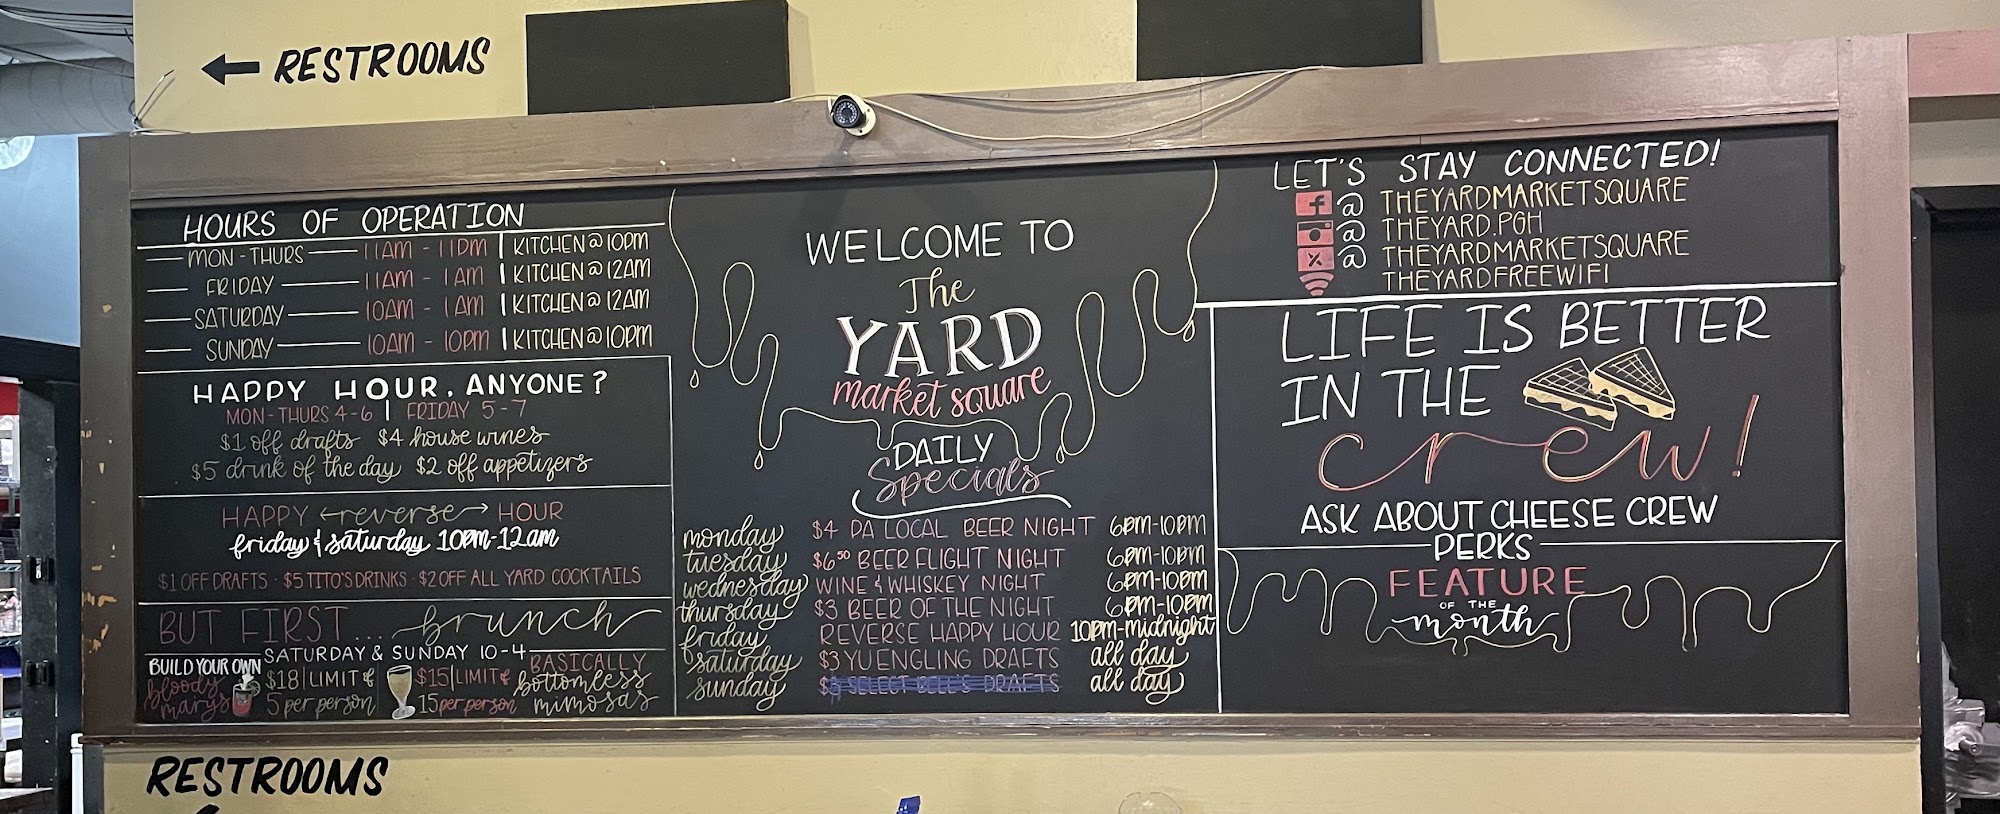 ← RESTROOMS
HOURS OF OPERATION
MON-THURS 11AM - 11PM | KITCHEN@10PM
FRIDAY 11AM - 1AM | KITCHEN@12AM
SATURDAY 10AM - 1AM | KITCHEN@12AM
SUNDAY 10AM - 10PM | KITCHEN@10PM
HAPPY HOUR, ANYONE?
MON-THURS 4-6 | FRIDAY 5-7
$1 off drafts $4 house wines
$5 drink of the day $2 off appetizers
HAPPY ←reverse→ HOUR
friday & saturday 10pm-12am
$1 OFF DRAFTS · $5 TITO'S DRINKS · $2 OFF ALL YARD COCKTAILS
BUT FIRST... brunch
SATURDAY & SUNDAY 10-4
BUILD YOUR OWN
bloody
marys
$18 | LIMIT of
5 per person
$15 | LIMIT of
15 per person
BASICALLY
bottomless
mimosas
WELCOME TO
The
YARD
market square
DAILY
Specials
monday $4 PA LOCAL BEER NIGHT 6PM-10PM
tuesday $6⁵⁰ BEER FLIGHT NIGHT 6PM-10PM
wednesday WINE & WHISKEY NIGHT 6PM-10PM
thursday $3 BEER OF THE NIGHT 6PM-10PM
friday REVERSE HAPPY HOUR 10PM-midnight
saturday $3 YUENGLING DRAFTS all day
sunday $3 SELECT BELL'S DRAFTS all day
LET'S STAY CONNECTED!
@ THEYARDMARKETSQUARE
@ THEYARD.PGH
@ THEYARDMARKETSQUARE
THEYARDFREEWIFI
LIFE IS BETTER
IN THE
crew!
ASK ABOUT CHEESE CREW
PERKS
FEATURE
OF THE
month
RESTROOMS